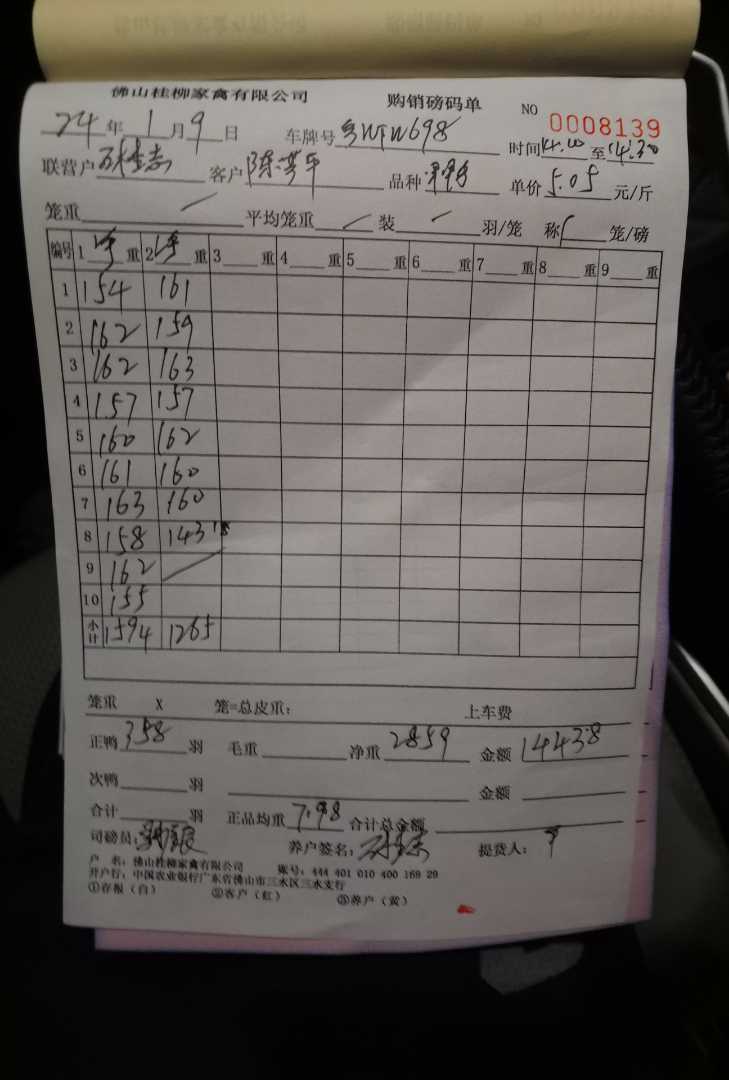 佛山桂柳家禽有限公司 购销磅码单 NO 0008139
24年1月9日 车牌号 粤WTW698 时间14.00至14.30
联营户 客户 陈 平 品种 单价5.05元/斤
笼重 / 平均笼重 / 装 / 羽/笼 称 笼/磅
编号 1 重 2 重 3 重 4 重 5 重 6 重 7 重 8 重 9 重
1 154 161
2 162 159
3 162 163
4 157 157
5 160 162
6 161 160
7 163 160
8 158 143 18
9 162 /
10 155
小计 1594 1265
笼重 X 笼=总皮重: 上车费
正鸭 358 羽 毛重 净重 2859 金额 14438
次鸭 羽 金额
合计 羽 正品均重 7.98 合计总金额
司磅员: 养户签名: 提货人:
户 名: 佛山桂柳家禽有限公司 账号: 444 401 010 400 169 29
开户行: 中国农业银行广东省佛山市三水区三水支行
①存根(白) ②客户(红) ③养户(黄)